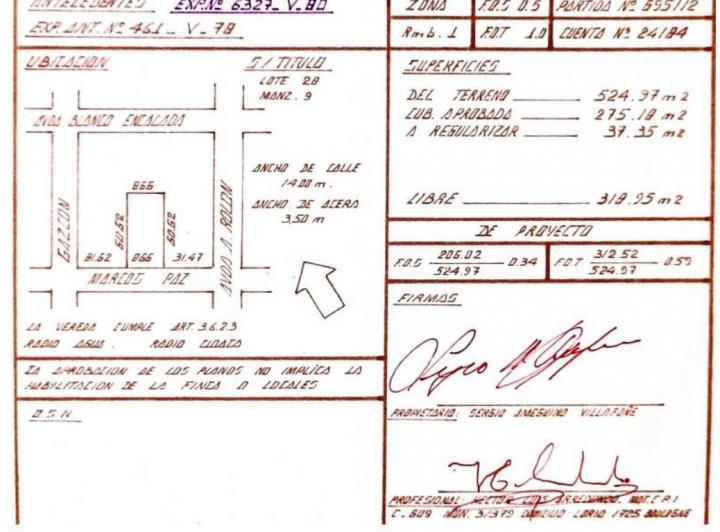 ANTECEDENTES EXP.Nº 6327_V_80
EXP. ANT. Nº 461_V_78
ZONA F.O.S 0.5 PARTIDA Nº 695112
Rmb. 1 F.O.T 1.0 CUENTA Nº 24184
UBICACION S/TITULO
LOTE 28
MANZ. 9
AVDA BLANCO ENCALADA
GAZCON
AVDA A. ROLON
866
60.62 60.62
81.62 866 31.47
MARCOS PAZ
ANCHO DE CALLE
14.00 m.
ANCHO DE ACERA
3,50 m
LA VEREDA CUMPLE ART. 3.6.2.3
RADIO AGUA. RADIO CLOACA
LA APROBACION DE LOS PLANOS NO IMPLICA LA
HABILITACION DE LA FINCA O LOCALES
O S N
SUPERFICIES
DEL TERRENO 524.97 m2
CUB. APROBADA 275.18 m2
A REGULARIZAR 37.35 m2
LIBRE 318.95 m2
DE PROYECTO
F.O.S 206.02 / 524.97 0.34 F.O.T 312.52 / 524.97 0.59
FIRMAS
PROPIETARIO: SERGIO AMEGUINO VILLAFAÑE
PROFESIONAL: HECTOR LUIS ARREDONDO. MAT. C P I
C. 609 MUN. 3/379 DOMICILIO LARIO 1725 BOULOGNE